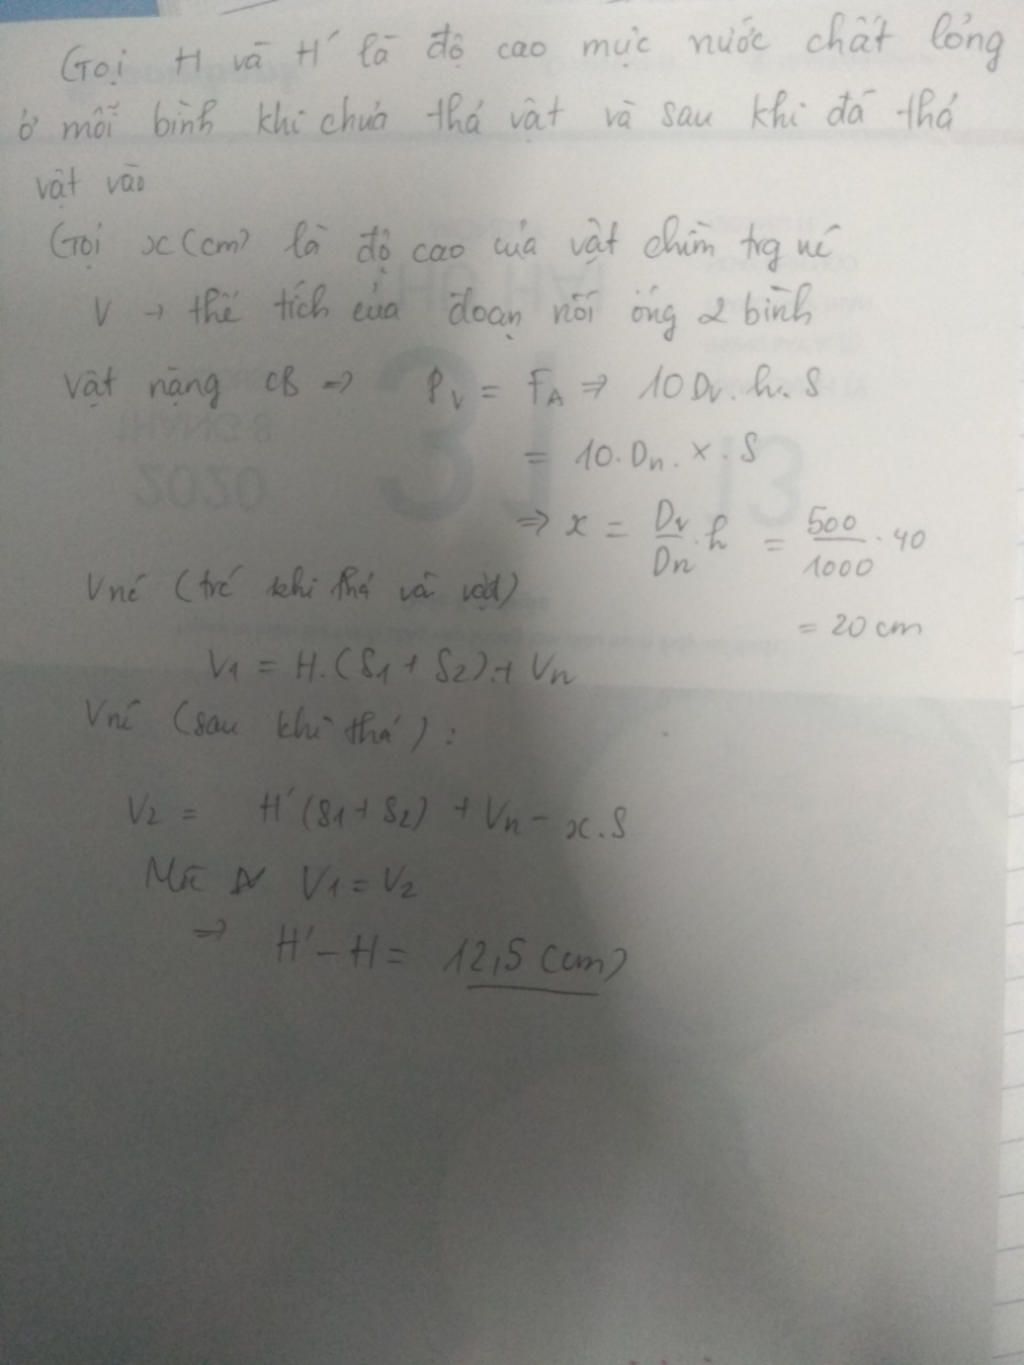 Gọi H và H' là độ cao mực nước chất lỏng
ở mỗi bình khi chưa thả vật và sau khi đã thả
vật vào
Gọi x (cm) là độ cao của vật chìm trg nc
V → thể tích của đoạn nối ống 2 bình
Vật nặng CB => PV = FA => 10 Dv. h. S
= 10. Dn. x. S
=> x = Dv/Dn . h = 500/1000 . 40
= 20 cm
Vnc (trc khi thả vào vật)
V1 = H. (S1 + S2) + Vn
Vnc (sau khi thả) :
V2 = H' (S1 + S2) + Vn - x. S
Mà V1 = V2
=> H' - H = 12,5 (cm)
THÁNG 8
2020
31
13